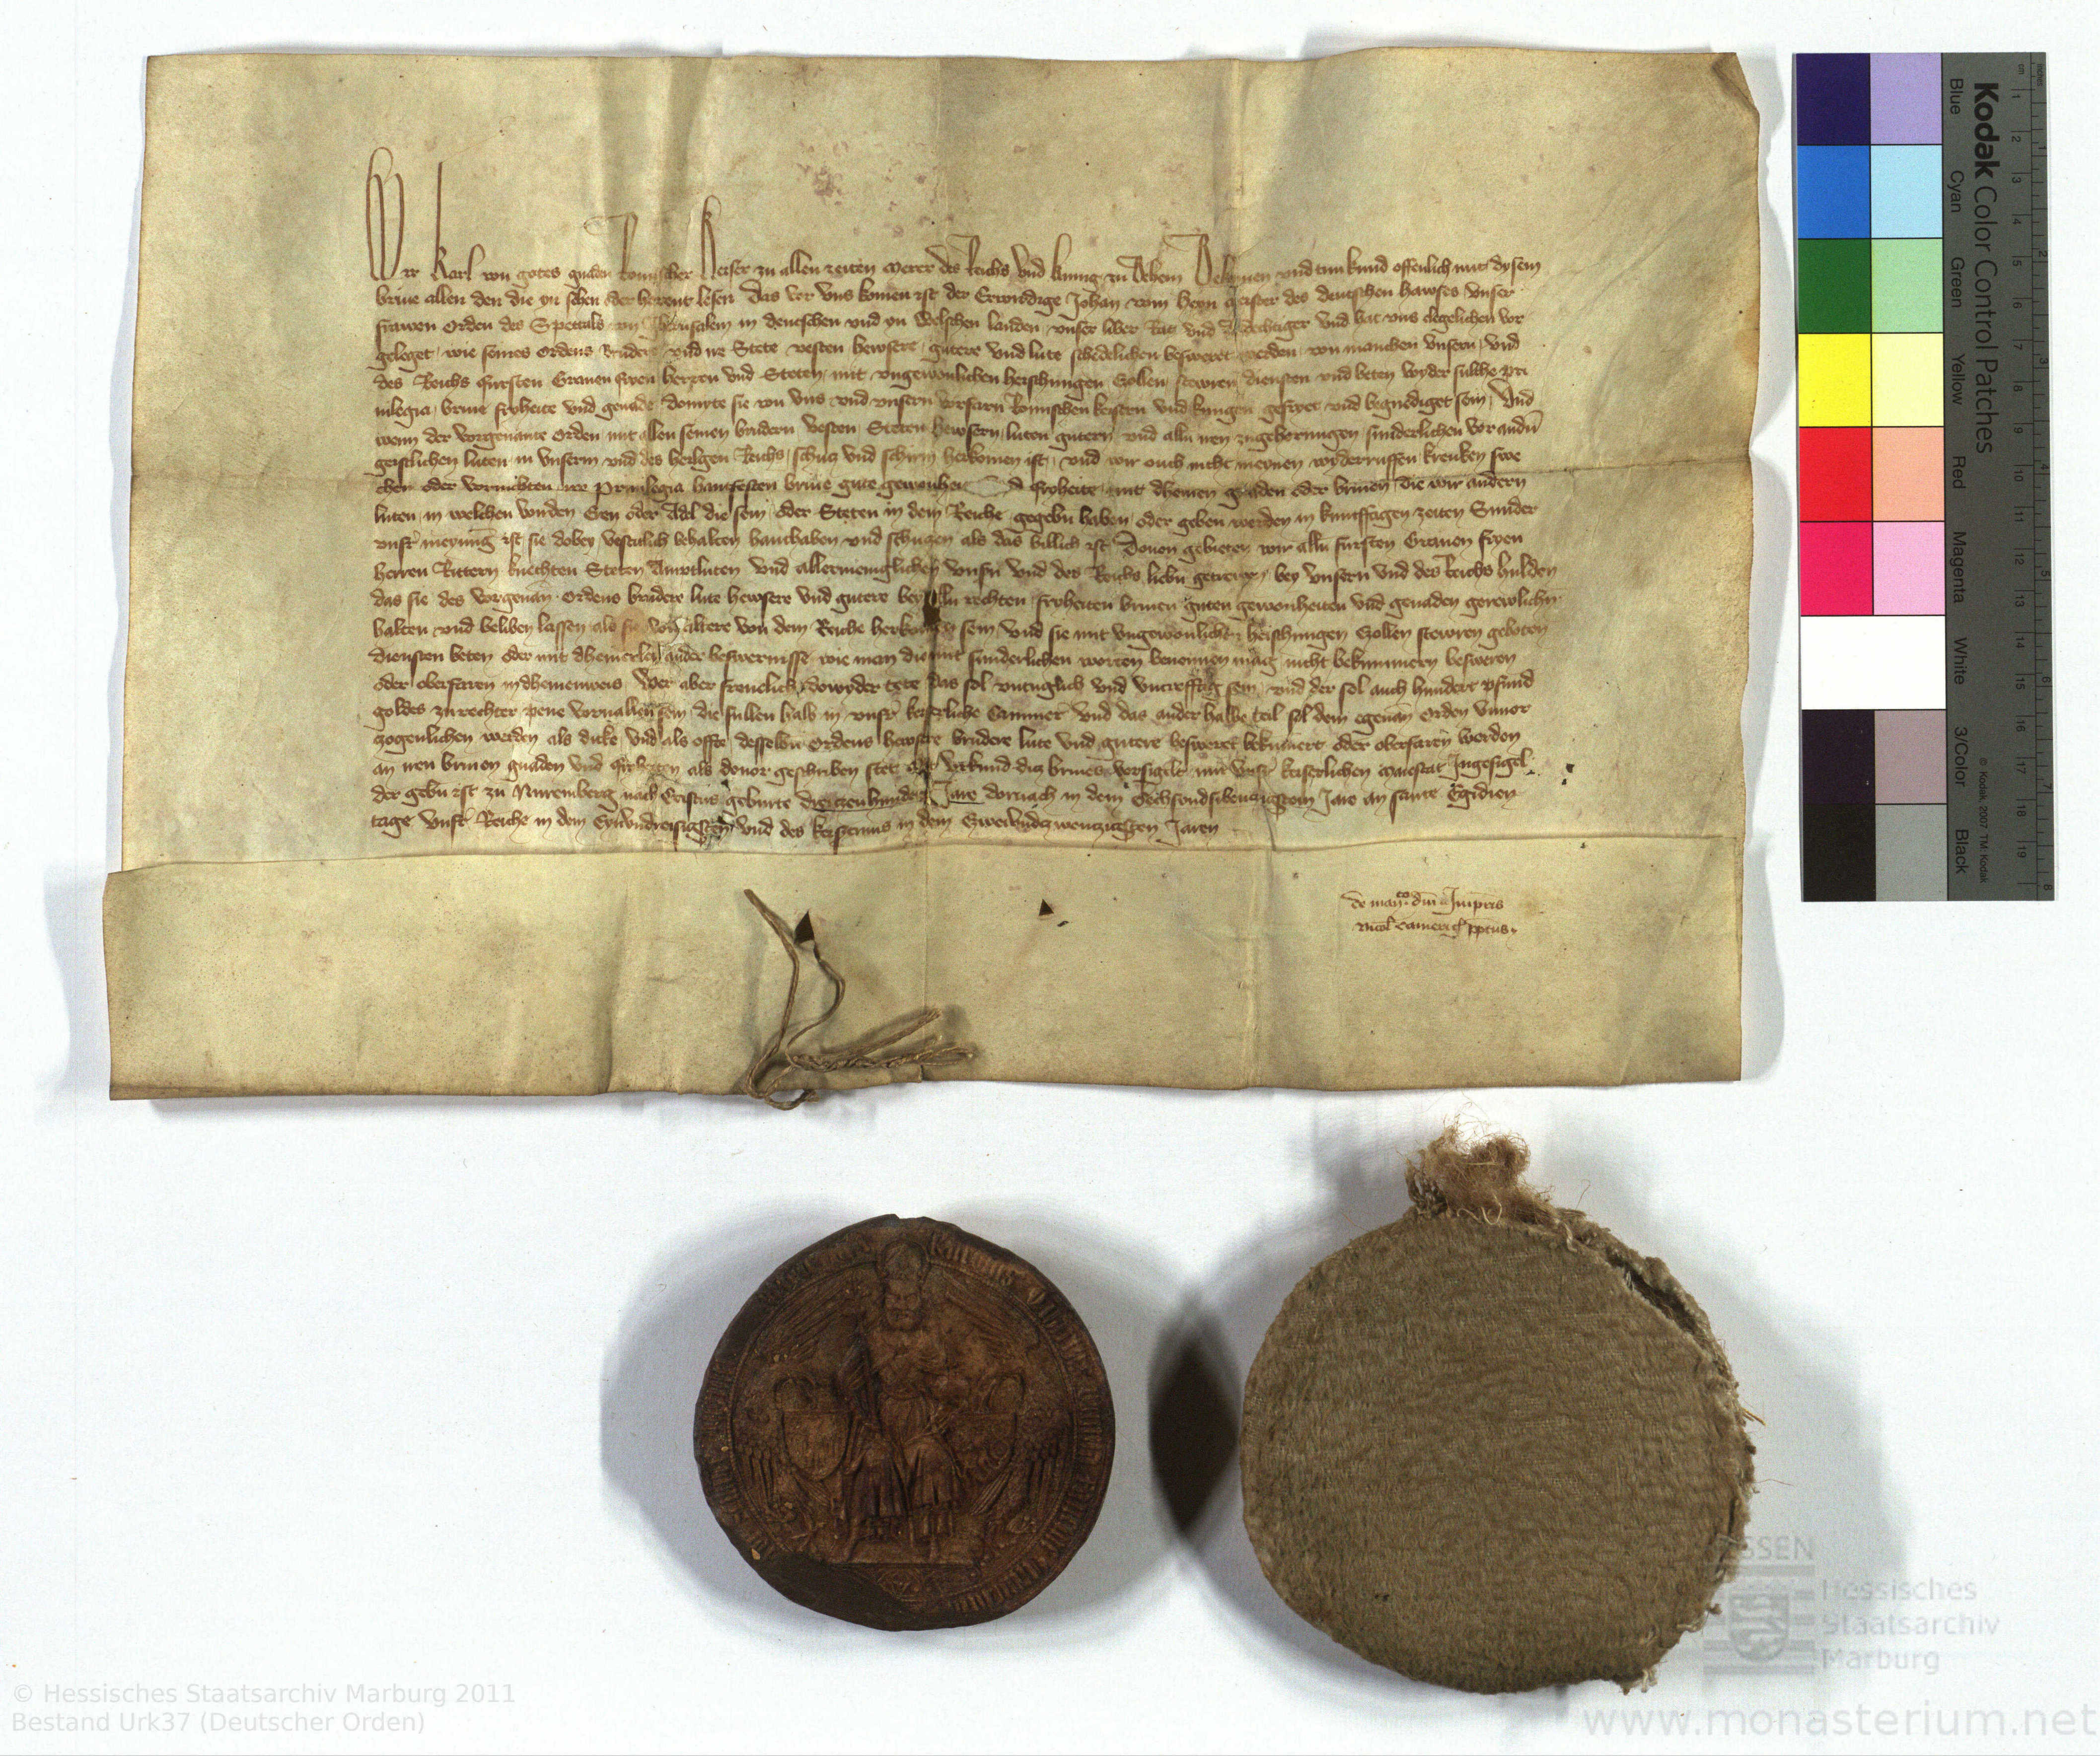 Wir Karl von gotes gnaden Romischer Keiser zu allen zeiten merer des Reichs und kunig zu Behem Bekennen und tun kund offenlich mit dysem
briue allen den die yn sehen oder horent lesen Das vor uns komen ist der Erwirdige Johan vom Heyn meister des deutschen hawses unser
frawen Orden des Spettals von Jherusalem in deutschen und yn Welschen landen unser liber Rat und dechtiger und hat uns clegelichen vor
geleget wie seines Ordens brudere und ire Stete vesten hewsere gutere und lute schedelichen besweret werden von manchen unsern und
des Reichs fursten Grauen fryen herren und Steten mit ungewonlichen heischungen Zollen stewren diensten und beten wyder sulche pri
uilegia briue fryheite und genade domyte sie von uns und unsern vorfarn Romischen keisern und kungen gefryet und begnediget sein Und
wenn der vorgenante Orden mit allen seinen brudern vesten Steten hewsern luten gutern und alln iren zugehorungen sunderlichen vor andn
geistlichen luten in unserm und des heilgen Reichs schutz und schirm herkomen ist und wir ouch nicht meynen wyderruffen krenken swe
chen oder vornichten ire privilegia hantfesten briue gute gewonheit fryheite mit dheinen gnaden oder briuen die wir andern
luten in welchen wirden Een oder Adel die sein oder Steten in dem Reiche gegebn haben oder geben werden in kunfftigen zeiten Sunder
unsr meynung ist sie dobey vesticlich behalten hanthaben und schutzen als das billich ist Douon gebieten wir alln fursten Grauen fryen
herren Rittern knechten Steten Amptluten und allermeniglichen unsn und des Reichs liebn getrewen bey unsern und des Reichs hulden
das sie des vorgenan Ordens brudere lute hewsere und gutere bey alln rechten fryheiten briuen guten gewonheiten und genaden gerewlichn
halten und beliben lassen als sie von altere von dem Reiche herkomen sein und sie mit ungewonlichen heischungen Zollen stewren geboten
diensten beten oder mit dheinerley ander beswernisse wie man die mit sunderlichen worten benennen mag nicht bekummern besweren
oder oberfaren in dheinenweis Wer aber freuelich dowyder tete das sol untuglich und untrefftig sein und der sol auch hundert pfund
goldes zu rechter pene voruallen sein die sullen halb in unsr keiserliche Cammer und das ander halbe teil sol dem egenan Orden unuor
zogenlichen werden als dicke und als offte desselbn Ordens hewsere brudere lute und gutere besweret bekumert oder oberfaren werden
an iren briuen gnaden und fryheiten als douor geschriben stet Mit urkund diz briues vorsigelt mit unsr keiserlichen maiestat Ingesigel
der gebn ist zu Nuremberg nach Cristus geburte dreizenhundert Jare dornach in dem Sechsundsibentzigstem Jare an sante Egidien
tage unsr Reiche in dem Eynundreisigsten und des keisertums in dem Zweiundzwentzigsten Jaren
de mandto dni Impris
Nicol Camericn ppitus
Kodak Color Control Patches
Blue Cyan Green Yellow Red Magenta White 3/Color Black
© Kodak, 2007 TM: Kodak
cm 1 2 3 4 5 6 7 8 9 10 11 12 13 14 15 16 17 18 19
inches 1 2 3 4 5 6 7 8
HESSEN
Hessisches
Staatsarchiv
Marburg
© Hessisches Staatsarchiv Marburg 2011
Bestand Urk37 (Deutscher Orden)
www.monasterium.net